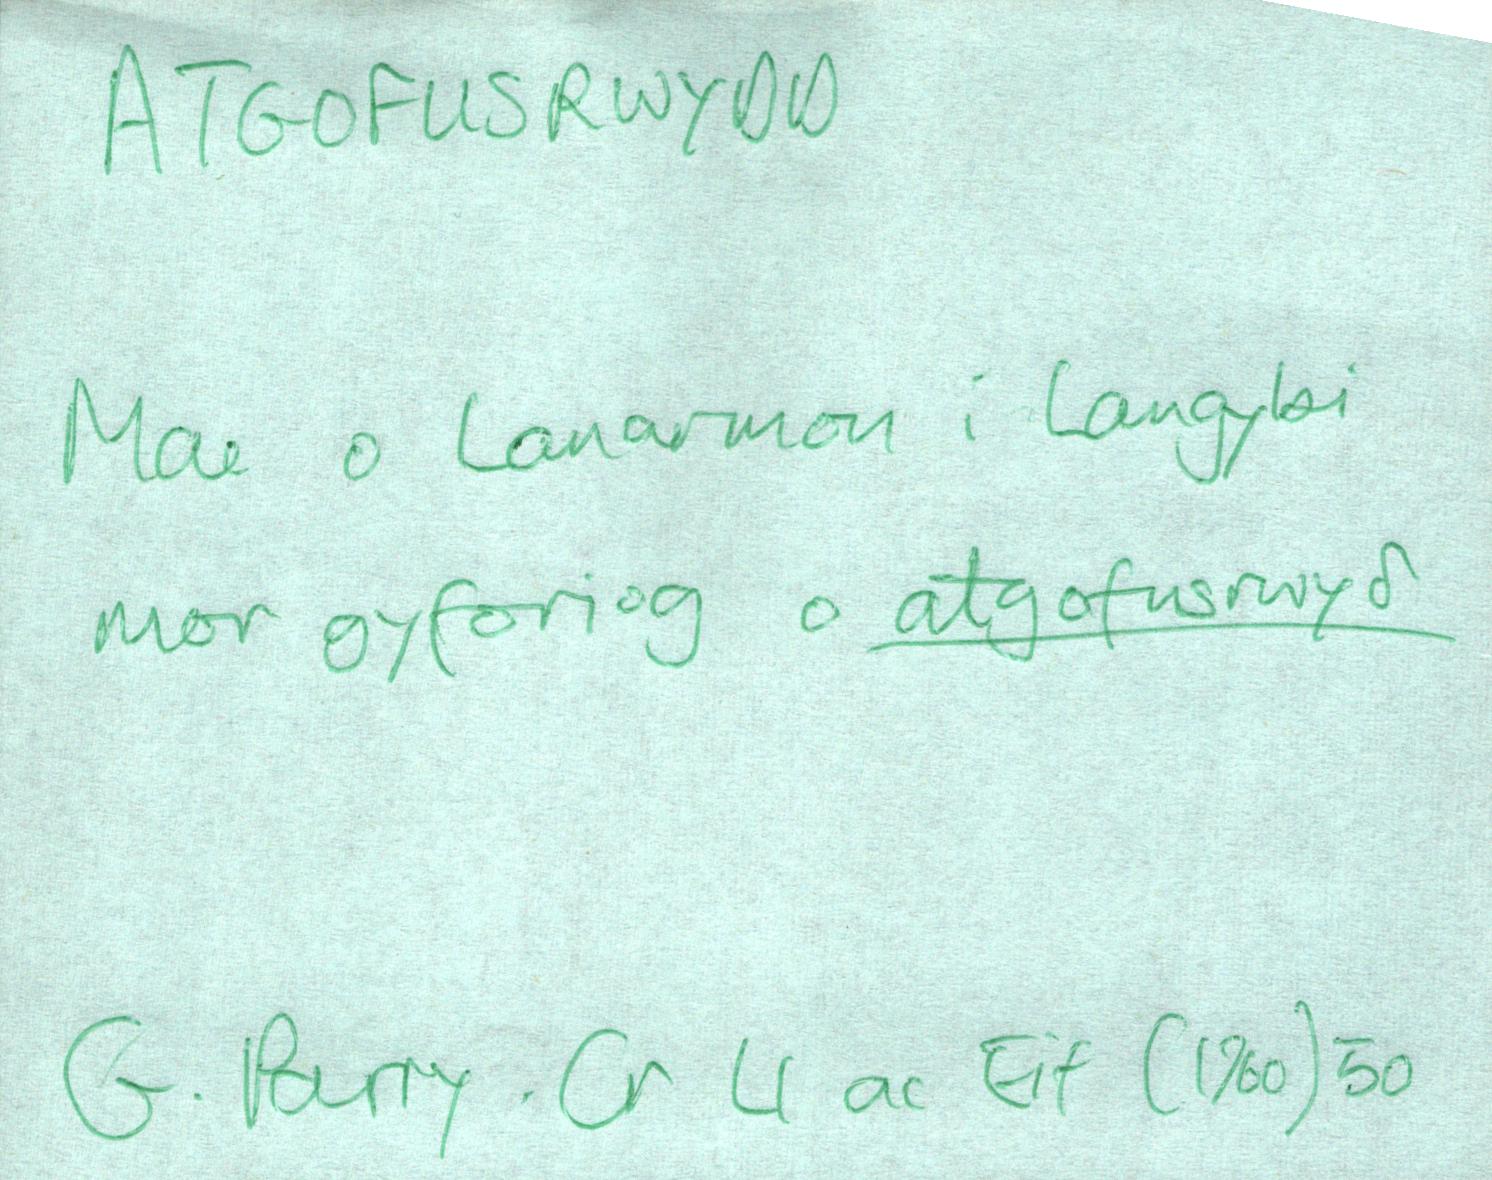 ATGOFUSRWYDD
Mae o Lanarmon i Langybi
mor gyforiog o atgofusrwyδ
G. Parry. Cr Ll ac Eif (1960) 50